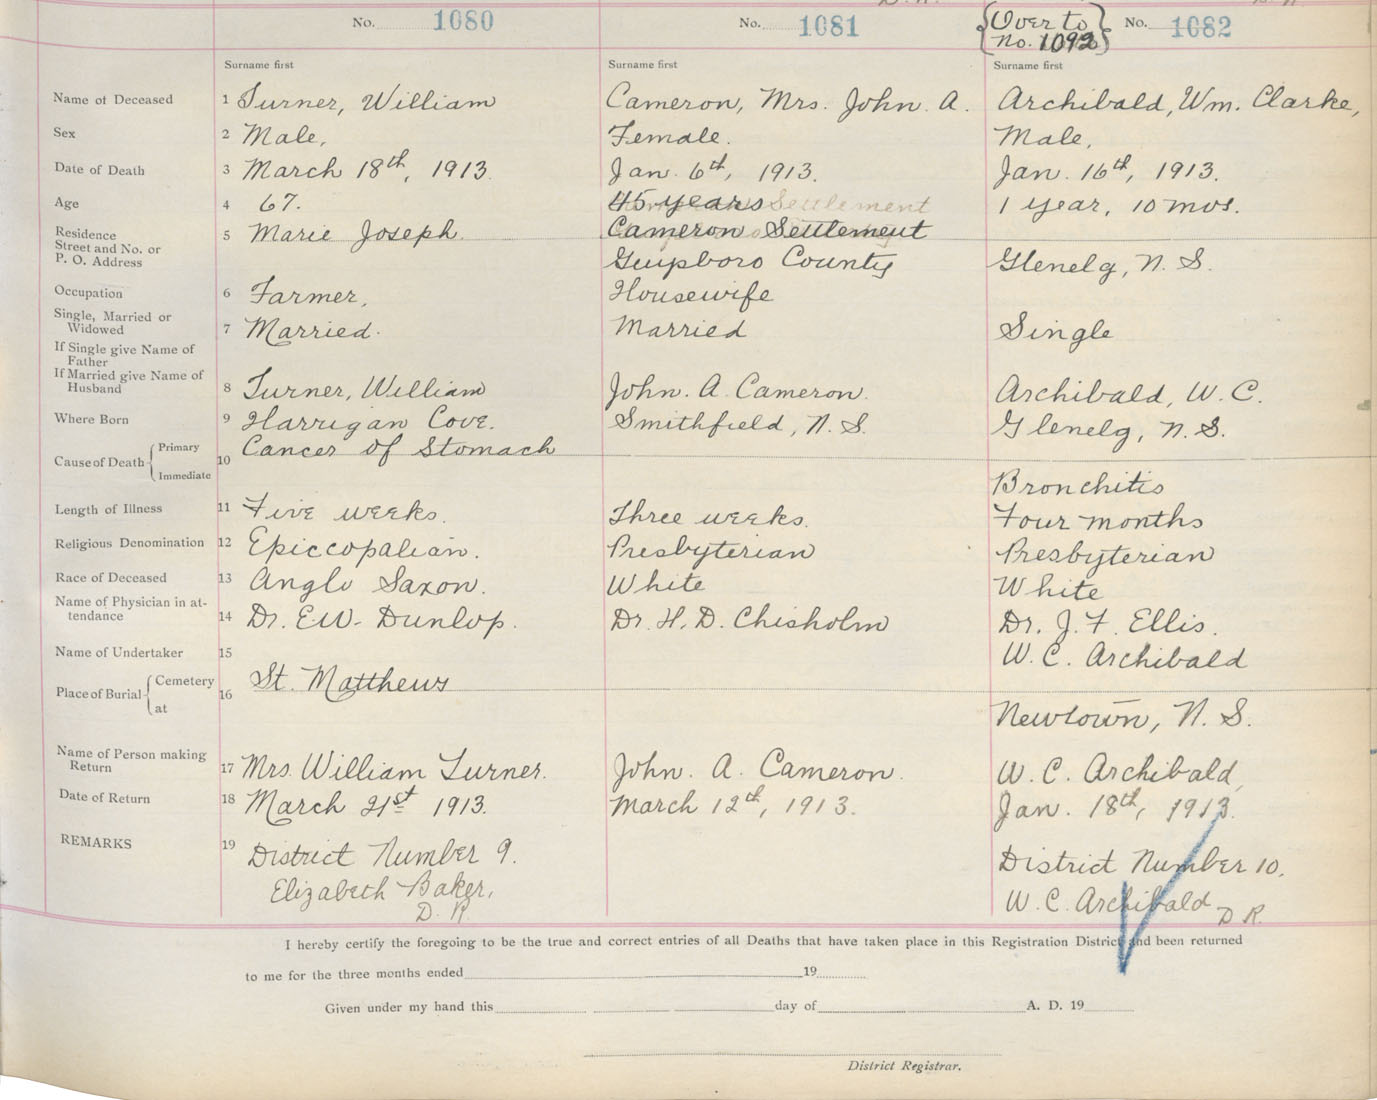 No. 1080 No. 1081 {Over to No. 1092} No. 1082
Surname first Surname first Surname first
Name of Deceased 1 Turner, William Cameron, Mrs. John. A. Archibald, Wm. Clarke,
Sex 2 Male, Female. Male,
Date of Death 3 March 18th, 1913. Jan. 6th, 1913. Jan. 16th, 1913.
Age 4 67. 45 years 1 year, 10 mos.
Residence Street and No. or P. O. Address 5 Marie Joseph. Cameron Settlement
Guysboro County Glenelg, N. S.
Occupation 6 Farmer, Housewife
Single, Married or Widowed 7 Married. Married Single
If Single give Name of Father
If Married give Name of Husband 8 Turner, William John. A Cameron. Archibald, W. C.
Where Born 9 Harrigan Cove. Smithfield, N. S. Glenelg, N. S.
Cause of Death { Primary Cancer of Stomach
10 Immediate Bronchitis
Length of Illness 11 Five weeks. Three weeks. Four months
Religious Denomination 12 Epiccopalian. Presbyterian Presbyterian
Race of Deceased 13 Anglo Saxon. White White
Name of Physician in attendance 14 Dr. E.W. Dunlop. Dr. H. D. Chisholm Dr. J. F. Ellis.
Name of Undertaker 15 W. C. Archibald
Place of Burial { Cemetery 16 St. Matthews
at Newtown, N. S.
Name of Person making Return 17 Mrs. William Turner. John. A. Cameron. W. C. Archibald,
Date of Return 18 March 21st 1913. March 12th, 1913. Jan. 18th, 1913.
REMARKS 19 District Number 9. District Number 10.
Elizabeth Baker, W. C. Archibald
D. R. D R.
I hereby certify the foregoing to be the true and correct entries of all Deaths that have taken place in this Registration District and been returned
to me for the three months ended 19
Given under my hand this day of A. D. 19
District Registrar.